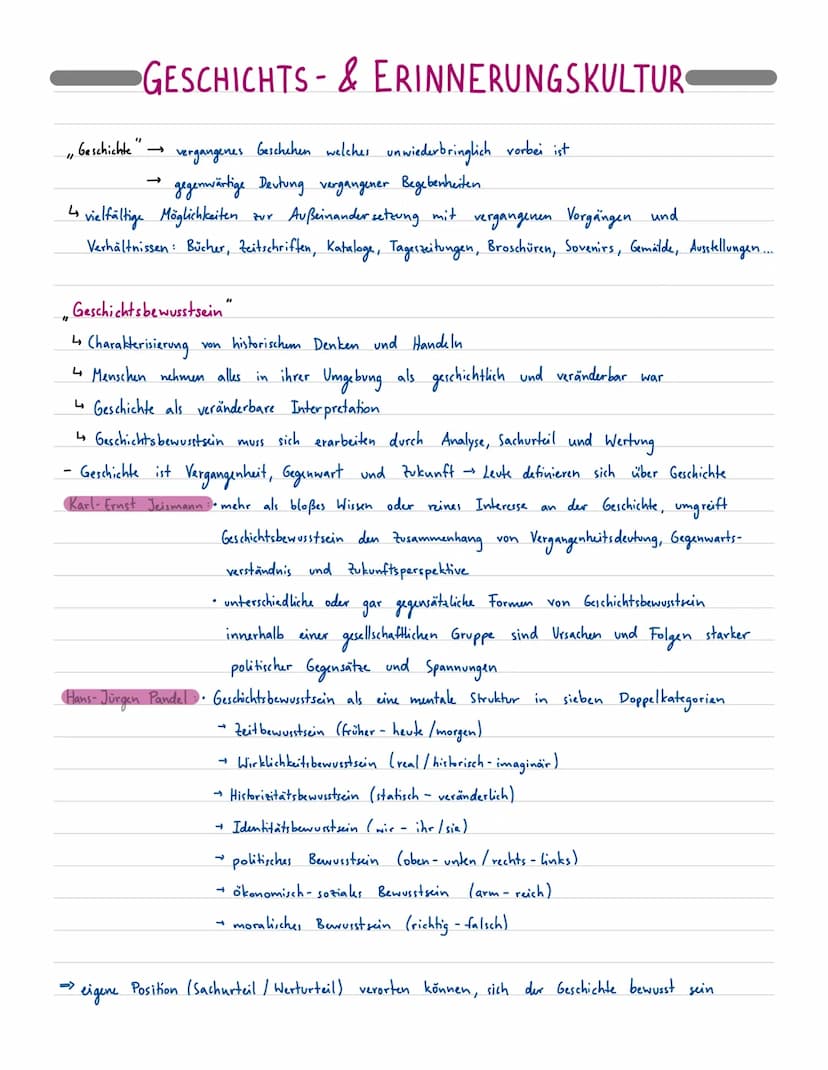 GESCHICHTS- & ERINNERUNGSKULTUR
„Geschichte" → vergangenes Geschehen welches unwiederbringlich vorbei ist
→ gegenwärtige Deutung vergangener Begebenheiten
↳ vielfältige Möglichkeiten zur Außeinandersetzung mit vergangenen Vorgängen und
Verhältnissen: Bücher, Zeitschriften, Kataloge, Tageszeitungen, Broschüren, Sovenirs, Gemälde, Ausstellungen...
„Geschichtsbewusstsein"
↳ Charakterisierung von historischem Denken und Handeln
↳ Menschen nehmen alles in ihrer Umgebung als geschichtlich und veränderbar war
↳ Geschichte als veränderbare Interpretation
↳ Geschichtsbewusstsein muss sich erarbeiten durch Analyse, Sachurteil und Wertung
- Geschichte ist Vergangenheit, Gegenwart und Zukunft → Leute definieren sich über Geschichte
Karl-Ernst Jeismann: • mehr als bloßes Wissen oder reines Interesse an der Geschichte, umgreift
Geschichtsbewusstsein den Zusammenhang von Vergangenheitsdeutung, Gegenwarts-
verständnis und Zukunftsperspektive
• unterschiedliche oder gar gegensätzliche Formen von Geschichtsbewusstsein
innerhalb einer gesellschaftlichen Gruppe sind Ursachen und Folgen starker
politischer Gegensätze und Spannungen
Hans-Jürgen Pandel: • Geschichtsbewusstsein als eine mentale Struktur in sieben Doppelkategorien
→ Zeitbewusstsein (früher - heute/morgen)
→ Wirklichkeitsbewusstsein (real/historisch - imaginär)
→ Historizitätsbewusstsein (statisch - veränderlich)
→ Identitätsbewusstsein (wir - ihr/sie)
→ politisches Bewusstsein (oben - unten/rechts - links)
→ ökonomisch-soziales Bewusstsein (arm - reich)
→ moralisches Bewusstsein (richtig - falsch)
⇒ eigene Position (Sachurteil/Werturteil) verorten können, sich der Geschichte bewusst sein